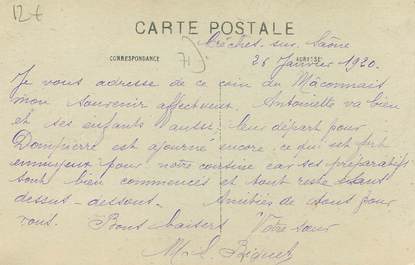 12€
CARTE POSTALE
CORRESPONDANCE
71)
ADRESSE
Crêches-sur-Saône
26 Janvier 1920.
Je vous adresse de ce coin du Mâconnais
mon souvenir affectueux. Antoinette va bien
et ses enfants aussi, leur départ pour
Dompierre est ajourné encore, ce qui est fort
ennuyeux pour notre cousine car ses préparatifs
sont bien commencés et tout reste sens
dessus-dessous. Amitiés de tous pour
vous. Bons baisers Votre sœur
M. L.